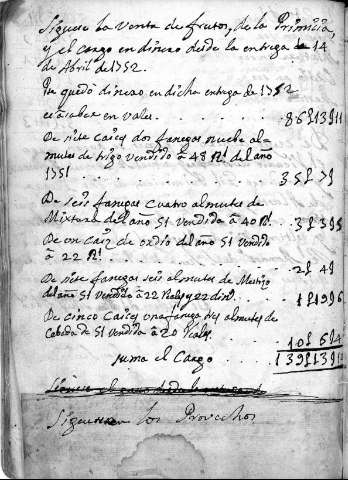 Siguese la Venta de frutos, de la Primicia,
y el Cargo en dinero desde la entrega de 14
de Abril de 1752.
Que quedó dinero en dicha entrega de 1752
es asaber en vales . . . . 86£13§11
De siete Caices dos fanegas nuebe al-
mutes de trigo vendido â 48 Rs. del año
1751 . . . . . 35£ 5§
De seis fanegas cuatro almutes de
Mixtura del año 51 vendida â 40 Rs. . 3£3§5
De un Caiz de ordio del año 51 vendido
â 22 Rs. . . . . 2£ 4§
De siete fanegas seis almutes de Mestizo
del año 51 Vendido â 22 Reales y 22 din.s . . 1£19§6
De cinco Caices una fanega tres almutes de
Cebada de 51 vendida à 20 Reales . . 10£ 6§4
suma el Cargo 139£13§11
Siguense los Provechos